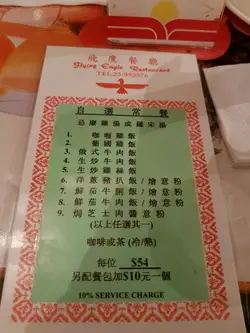 飛鷹餐廳
Flying Eagle Restaurant
自選常餐
忌廉雞湯或羅宋湯
1. 咖喱雞飯
2. 葡國雞飯
3. 俄式牛肉飯
4. 生炒牛肉飯
5. 生炒雞絲飯
6. 洋蔥豬扒飯/燴意粉
7. 鮮茄牛脷飯/燴意粉
8. 鮮茄牛肉飯/燴意粉
9. 焗芝士肉醬意粉
(以上任選其一)
咖啡或茶 (冷/熱)
每位 $54
另配餐包加$10元一個
10% SERVICE CHARGE